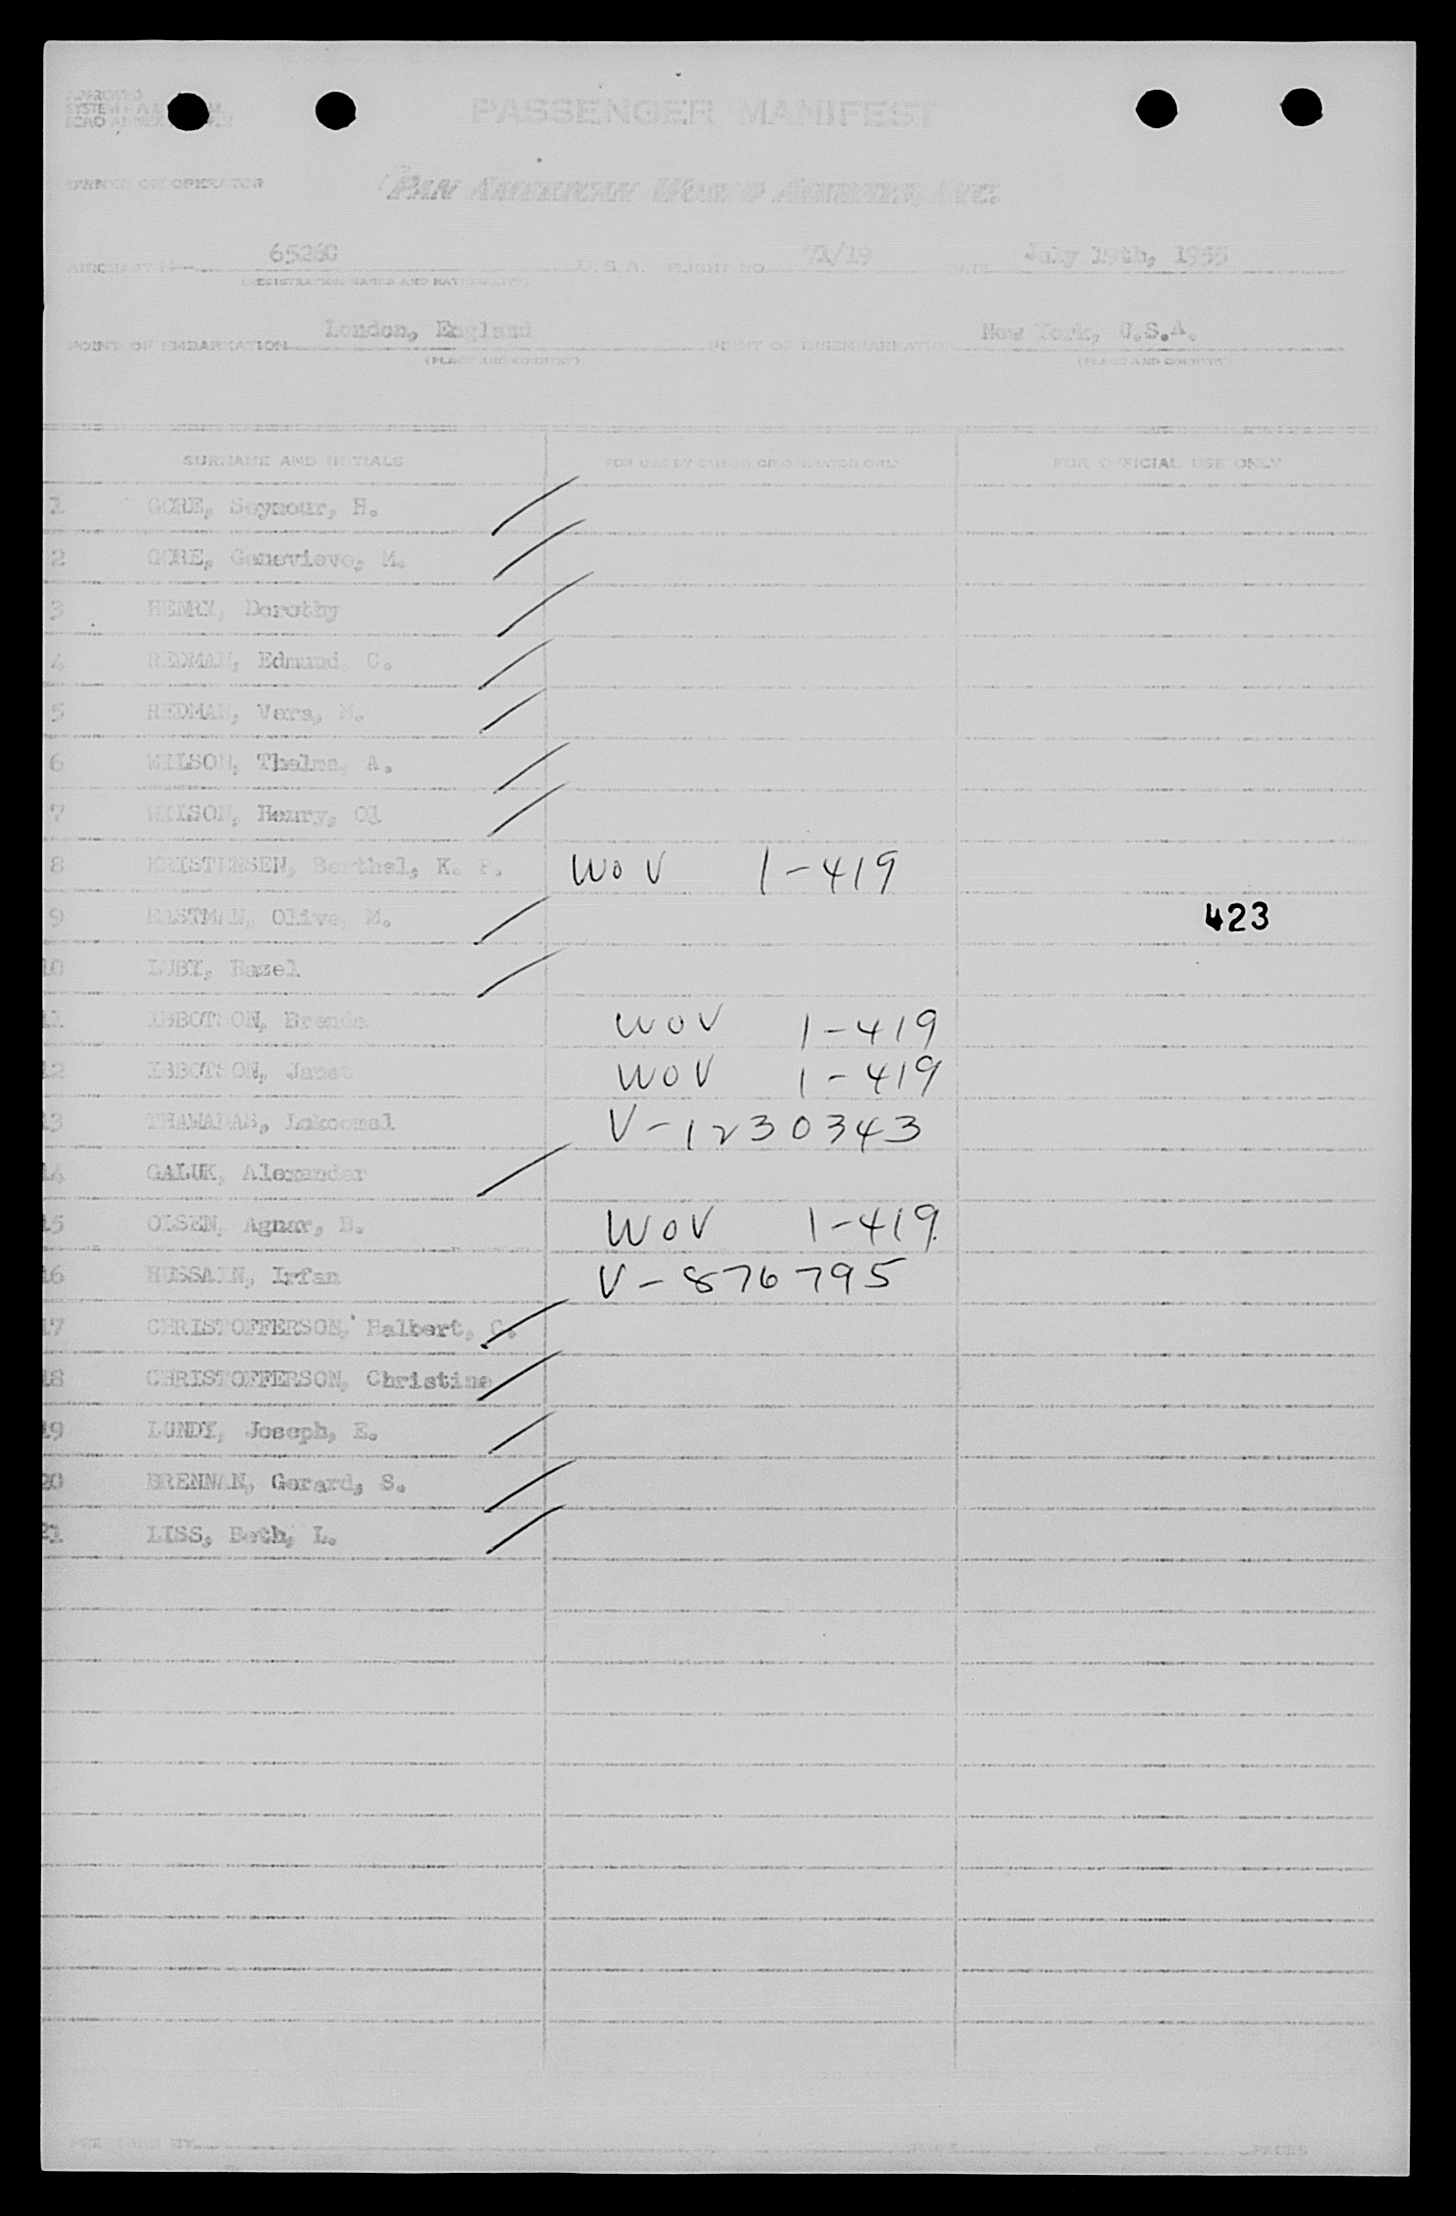 APPROVED
PASSENGER MANIFEST
OWNER OR OPERATOR PAN AMERICAN WORLD AIRWAYS, INC.
65260 U.S.A. FLIGHT NO. 71/19 DATE July 19th, 1955
(REGISTRATION MARKS AND NATIONALITY)
POINT OF EMBARKATION London, England POINT OF DISEMBARKATION New York, U.S.A.
(PLACE AND COUNTRY) (PLACE AND COUNTRY)
SURNAME AND INITIALS FOR USE BY OWNER OR OPERATOR ONLY FOR OFFICIAL USE ONLY
1 GORE, Seymour, H.
2 GORE, Genevieve, M.
3 HENRY, Dorothy
4 REDMAN, Edmund, C.
5 REDMAN, Vera, M.
6 WILSON, Thelma, A.
7 WILSON, Henry,
8 KRISTENSEN, Berthel, K. WOV 1-419
9 EASTMAN, Olive, M. 423
10 LUBY, Hazel
11 IBBOTSON, Brenda WOV 1-419
12 IBBOTSON, Janet WOV 1-419
13 V-1230343
14 GALUK, Alexander
15 OLSEN, Agnar, B. WOV 1-419
16 HUSSAIN, Irfan V-876795
17 CHRISTOFFERSON, Halbert, C.
18 CHRISTOFFERSON, Christine
19 LUNDY, Joseph, E.
20 BRENNAN, Gerard, S.
21 LISS, Beth, L.
PAGES